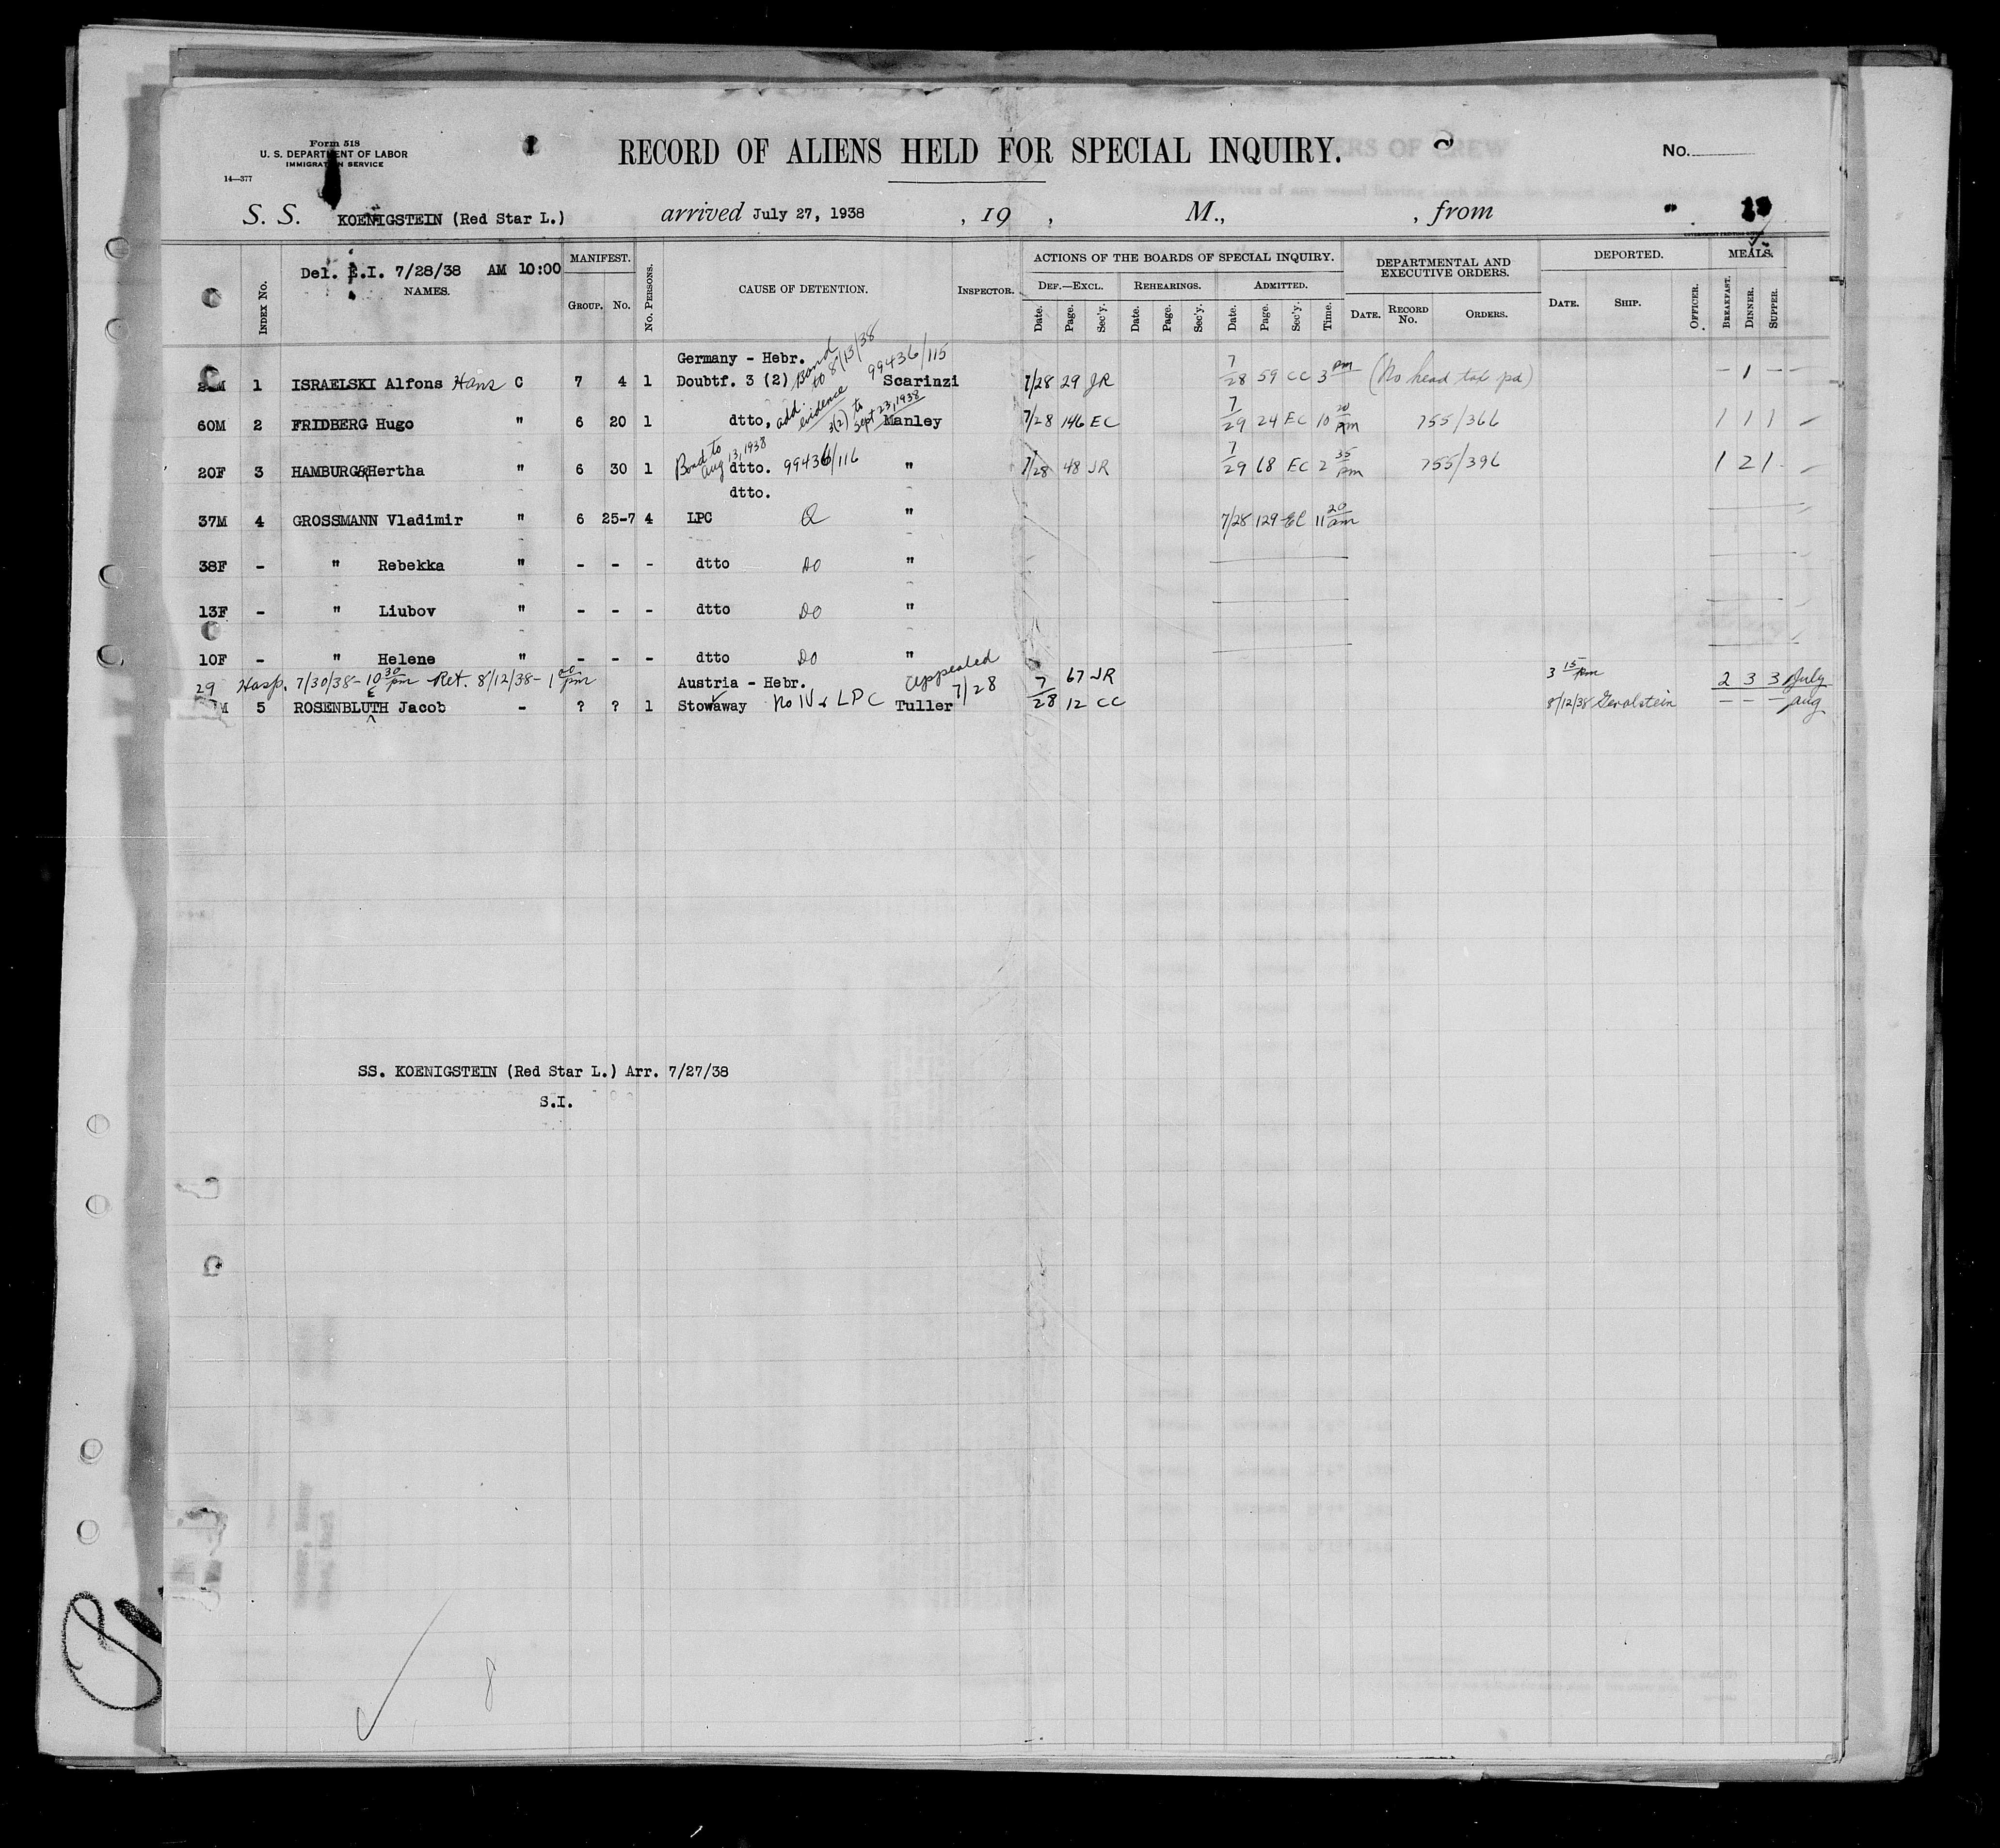 Form 518
U. S. DEPARTMENT OF LABOR
IMMIGRATION SERVICE
14—377
RECORD OF ALIENS HELD FOR SPECIAL INQUIRY.
No.
S. S. KOENIGSTEIN (Red Star L.) arrived July 27, 1938 , 19 , M., , from
Del. E.I. 7/28/38 AM 10:00
INDEX No. NAMES. MANIFEST. GROUP. No. No. PERSONS. CAUSE OF DETENTION. INSPECTOR. ACTIONS OF THE BOARDS OF SPECIAL INQUIRY. DEF.—EXCL. Date. Page. Sec'y. REHEARINGS. Date. Page. Sec'y. ADMITTED. Date. Page. Sec'y. Time. DEPARTMENTAL AND EXECUTIVE ORDERS. DATE. RECORD No. ORDERS. DEPORTED. DATE. SHIP. OFFICER. MEALS. BREAKFAST. DINNER. SUPPER.
Germany - Hebr. Bond to 8/13/38 99436/115
1 ISRAELSKI Alfons Hans C 7 4 1 Doubtf. 3 (2) Scarinzi 7/28 29 JR 7/28 59 CC 3 pm (No head tax pd) - 1 - -
60M 2 FRIDBERG Hugo " 6 20 1 dtto, add. evidence 3(2) to Sept 23, 1938 Manley 7/28 146 EC 7/29 24 EC 10 20 755/366 1 1 1
Bond to Aug 13, 1938
20F 3 HAMBURG Hertha " 6 30 1 dtto. 99436/116 " 7/28 48 JR 7/29 68 EC 2 35 pm 755/396 1 2 1
dtto.
37M 4 GROSSMANN Vladimir " 6 25-7 4 LPC " 7/28 129 EC 11 20 am
38F - " Rebekka " - - - dtto DO "
13F - " Liubov " - - - dtto DO "
10F - " Helene " - - - dtto DO "
29 Hosp. 7/30/38 - 10 30 pm Ret. 8/12/38 - 1 00 pm Austria - Hebr. Appealed 7/28 67 JR 3 15 pm 2 3 3 July
M 5 ROSENBLUTH Jacob - ? ? 1 Stowaway No IV & LPC Tuller 7/28 12 CC 8/12/38 Gerolstein - - - Aug
E
SS. KOENIGSTEIN (Red Star L.) Arr. 7/27/38
S.I.
8